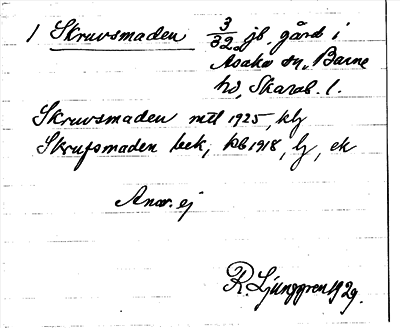 1 Skruvsmaden 3/32 jb. gård i
Asaka sn, Barne
hd, Skarab. l.
Skruvsmaden mtl 1925, klj
Skrufsmaden bek; kb 1918, lj, ek
Anv. ej
R. Ljunggren 1929.